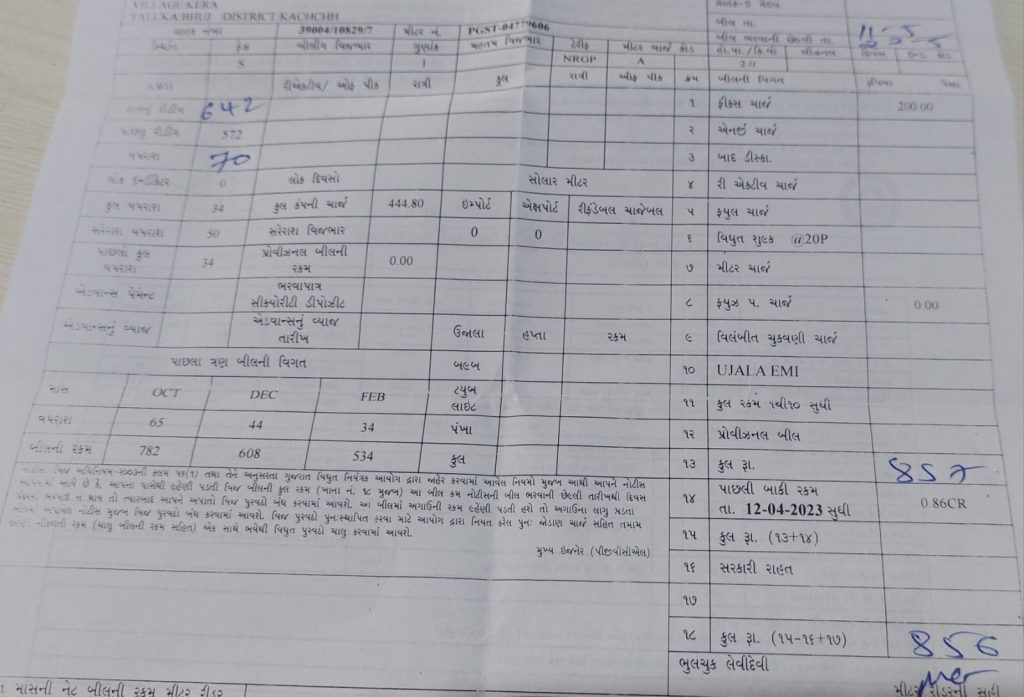 VILLAGE KERA
TALUKA BHUJ DISTRICT KACHCHH
ગ્રાહક નંબર 39004/10829/7 મીટર નં. PGST-04779606
બીલ તા. 11-5
બીલ ભરવાની છેલ્લી તા.
સ્થિતિ ફેસ બીલીંગ વિજભાર ગુણાંક મહતમ વિજભાર ટેરીફ મીટર ચાર્જ કોડ
S 1 NRGP A 2.0
KWH રીએક્ટીવ/ ઓફ પીક રાત્રી કુલ રાત્રી ઓફ પીક ક્રમ બીલની વિગત રૂપિયા પૈસા
હાલનું રીડીંગ 642 ૧ ફીક્સ ચાર્જ 200.00
પાછલુ રીડીંગ 572 ૨ એનર્જી ચાર્જ
વપરાશ 70 ૩ બાદ ડીસ્કા.
લોક ઇન્ડીકેટર 0 લોક દિવસો સોલાર મીટર ૪ રી એક્ટીવ ચાર્જ
કુલ વપરાશ 34 કુલ કંપની ચાર્જ 444.80 ઇમ્પોર્ટ એક્ષપોર્ટ રીફંડેબલ ચાજેબલ ૫ ફયુલ ચાર્જ
સરેરાશ વપરાશ 50 સરેરાશ વિજભાર 0 0 ૬ વિધુત શુલ્ક @20P
પાછલો કુલ વપરાશ 34 પ્રોવીઝનલ બીલની રકમ 0.00 ૭ મીટર ચાર્જ
એડવાન્સ પેમેન્ટ ભરવાપાત્ર સીક્યોરીટી ડીપોઝીટ ૮ ફયુઝ પ. ચાર્જ 0.00
એડવાન્સનું વ્યાજ એડવાન્સનું વ્યાજ તારીખ ઉજાલા હપ્તા રકમ ૯ વિલંબીત ચુકવણી ચાર્જ
પાછલા ત્રણ બીલની વિગત બલ્બ ૧૦ UJALA EMI
માસ OCT DEC FEB ટયુબ લાઇટ ૧૧ કુલ રકમ ૧થી૧૦ સુધી
વપરાશ 65 44 34 પંખા ૧૨ પ્રોવીઝનલ બીલ
બીલની રકમ 782 608 534 કુલ ૧૩ કુલ રૂા. 857
નોટીસ વિજ અધિનિયમ-૨૦૦૩ની કલમ ૫૬(૧) તથા તેને અનુસરતા ગુજરાત વિધુત નિયંત્રક આયોગ દ્વારા જાહેર કરવામાં આવેલ નિયમો મુજબ આથી આપને નોટીસ
આપવામાં આવે છે કે, આપના પાસેથી લ્હેણી પડતી વિજ બીલની કુલ રકમ (ખાના નં. ૧૮ મુજબ) આ બીલ કમ નોટીસની બીલ ભરવાની છેલ્લી તારીખથી દિવસ
ભરપાઇ ન થાય તો ત્યારબાદ આપને અપાતો વિજ પુરવઠો બંધ કરવામાં આવશે. આ બીલમાં અગાઉની રકમ લ્હેણી પડતી હશે તો અગાઉના લાગુ પડતા
બીલમાં અપાયેલ નોટીસ મુજબ વિજ પુરવઠો બંધ કરવામાં આવશે. વિજ પુરવઠો પુનઃસ્થાપિત કરવા માટે આયોગ દ્વારા નિયત કરેલ પુનઃ જોડાણ ચાર્જ સહિત તમામ
નીકળતી રકમ (ચાલુ બીલની રકમ સહિત) એક સાથે ભર્યેથી વિધુત પુરવઠો ચાલુ કરવામાં આવશે.
મુખ્ય ઇજનેર (પીજીવીસીએલ)
૧૪ પાછલી બાકી રકમ
તા. 12-04-2023 સુધી 0.86CR
૧૫ કુલ રૂા. (૧૩+૧૪)
૧૬ સરકારી રાહત
૧૭
૧૮ કુલ રૂા. (૧૫-૧૬+૧૭) 856
ભુલચુક લેવીદેવી
માસની નેટ બીલની રકમ મીટર રીડર મીટર રીડરની સહી